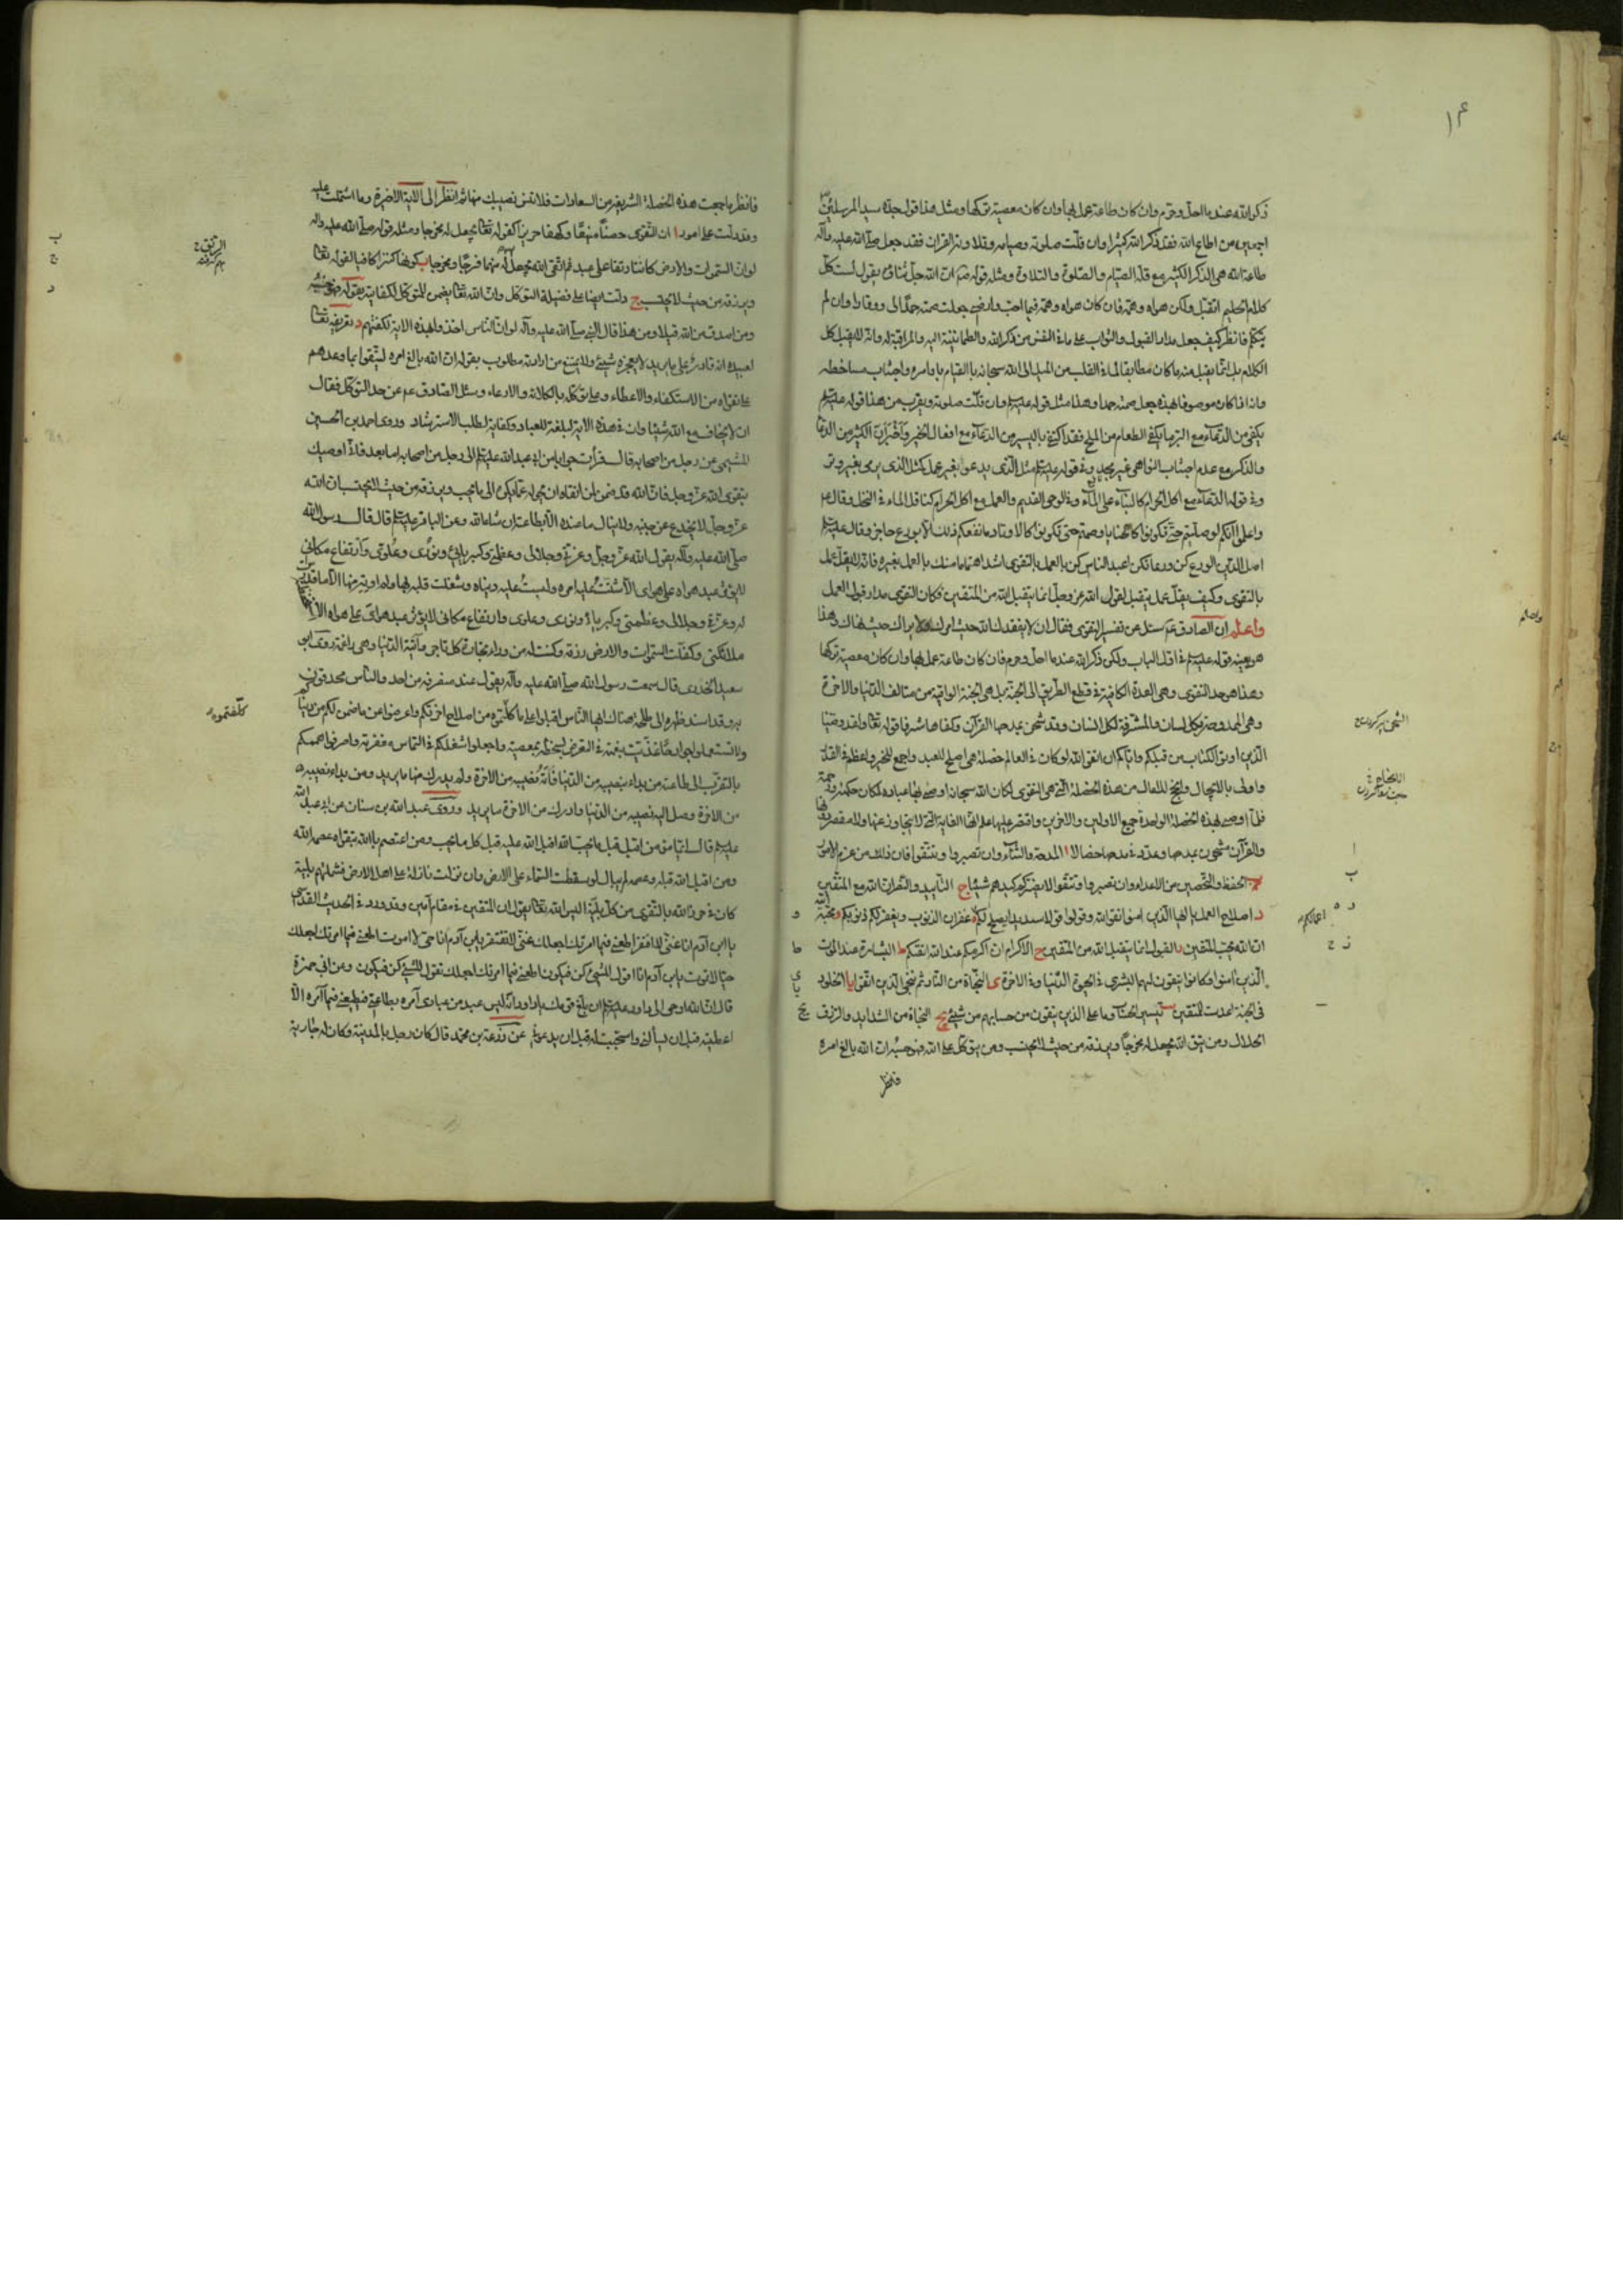 ذكر الله عند ما احل وحرم وان كان طاعة عمل بها وان كان معصية تركها ومثل هذا قول جده سيد المرسلين
اجمعين من اطاع الله فقد ذكر الله كثيرا وان قلت صلوته وصيامه وتلاوته القران فقد جعل صلى الله عليه وآله
طاعة الله هى الذكر الكثير مع قلة الصيام والصلوة والتلاوة ومثله قوله ان الله جل ثناؤه يقول لست كل
كلام الحكيم اتقبل ولكن هواه وهمه فان كان هواه وهمه فيما احب وارضى جعلت صمته حمدا لى ووقارا وان لم
يتكلم فانظر كيف جعل مدار القبول والثواب على ما فى النفس من ذكر الله والطمانينة اليه والمراقبة له وانه لا يقبل كل
الكلام بل انما يقبل منه ما كان مطابقا لما فى القلب من الميل الى الله سبحانه بالقيام باوامره واجتناب مساخطه
وانه اذا كان موصوفا بهذه جعل صمته حمدا وهذا مثل قوله عليه السلم وان قلت صلوته ويقرب من هذا قوله عليه السلم
يكفى من الدعاء مع البر ما يكفى الطعام من الملح فقد اكتفى باليسير من الدعاء مع افعال الخير واخبر ان الكثير من الدعاء
والذكر مع عدم اجتناب النواهى غير مجد وفى قوله عليه السلم مثل الذى يدعو بغير عمل كمثل الذى يرمى بغير وتر
وفى قوله الدعاء مع اكل الحرام كالبناء على الماء وفى الوحى القديم والعمل مع اكل الحرام كناقل الماء فى المنخل وقال
واعلموا انكم لو صليتم حتى تكونوا كالحنايا وصمتم حتى تكونوا كالاوتاد ما نفعكم ذلك الا بورع حاجز وقال عليه السلم
اصل الدين الورع كن ورعا تكن اعبد الناس كن بالعمل بالتقوى اشد اهتماما منك بالعمل بغيره فانه لا يقل عمل
بالتقوى وكيف يقل عمل يتقبل لقول الله عز وجل انما يتقبل الله من المتقين فكان التقوى مدار قبول العمل
واعلم ان الصادق عم سئل عن تفسير التقوى فقال ان لا يفقدك الله حيث امرك ولا يراك حيث نهاك وهذا
هو بعينه قوله عليه السلم فى اول الباب ولكن ذكر الله عند ما احل وحرم فان كان طاعة عمل بها وان كان معصية تركها
وهذا هو حد التقوى وهى العدة الكافية فى قطع الطريق الى الجنة بل هى الجنة الواقية من متالف الدنيا والاخرة
وهى الممدوحة بكل لسان والمشرفة لكل انسان وقد شحن بمدحها القرآن وكفاها شرفا قوله تعالى ولقد وصينا
الذين اوتوا الكتاب من قبلكم واياكم ان اتقوا الله ولو كان فى العالم خصلة هى اصلح للعبد واجمع للخير واعظم فى القدر
واولى بالايجال وانجح للامال من هذه الخصلة التى هى التقوى لكان الله سبحانه اوصى بها عباده لمكان حكمته ورحمته
فلما اوصى بهذه الخصلة الواحدة جميع الاولين والاخرين واقتصر عليها علم انها الغاية التى لا يتجاوز عنها ولا مقصر دونها
والقرآن مشحون بمدحها وعدد فى مدحها خصالا ا المدحة والثناء وان تصبروا وتتقوا فان ذلك من عزم الامور
ب الحفظ والتحصين من الاعداء وان تصبروا وتتقوا لا يضركم كيدهم شيئا ج التاييد والنصر ان الله مع المتقين
د اصلاح العمل يا ايها الذين امنوا اتقوا الله وقولوا قولا سديدا يصلح لكم ه غفران الذنوب ويغفر لكم ذنوبكم و محبة الله
ان الله يحب المتقين ز القبول انما يتقبل الله من المتقين ح الاكرام ان اكرمكم عند الله اتقيكم ط البشارة عند الموت
الذين امنوا وكانوا يتقون لهم البشرى فى الحيوة الدنيا وفى الاخرة ى النجاة من النار ثم ننجى الذين اتقوا يا الخلود
فى الجنة اعدت للمتقين يب تيسير الحساب وما على الذين يتقون من حسابهم من شىء يج النجاة من الشدايد والرزق
الحلال ومن يتق الله يجعل له مخرجا ويرزقه من حيث لا يحتسب ومن يتوكل على الله فهو حسبه ان الله بالغ امره
فانظر
اعمالكم
فانظر ما جمعت هذه الخصلة الشريفة من السعادات فلا تنس نصيبك منها ثم انظر الى الاية الاخيرة وما اشتملت عليه
وقد دلت على امور ا ان التقوى حصنا منيعا وكهفا حريزا كقوله تعالى يجعل له مخرجا ومثله قوله صلى الله عليه وآله
لو ان السموات والارض كانتا رتقا على عبد ثم اتقى الله لجعل الله له منهما فرجا ومخرجا ب كونها كنزا كافيا لقوله تعالى
ويرزقه من حيث لا يحتسب ج دلت ايضا على فضيلة التوكل وان الله تعالى يضمن للمتوكل لكفايته بقوله فهو حسبه
ومن اصدق من الله قيلا ومن هذا قال النبى صلى الله عليه وآله لو ان الناس اخذوا بهذه الاية لكفتهم د تعريفه تعالى
لعبيده انه قادر على ما يريد لا يعجزه شىء ولا يمتنع من ارادته مطلوب بقوله ان الله بالغ امره ليثقوا بما وعدهم
على تقواه من الاستكفاء والاعطاء وعلى توكله بالكلاءة والارعاء وسئل الصادق عم عن حد التوكل فقال
ان لا يخاف مع الله شيئا وان فى هذه الاية لبلغة للعباد وكفاية لطلب الاسترشاد وروى احمد بن الحسين
الميثمى عن رجل من اصحابه قال قرأت جوابا من ابى عبد الله عليه السلم الى رجل من اصحابه اما بعد فانى اوصيك
بتقوى الله عز وجل فان الله قد ضمن لمن اتقاه ان يحوله عما يكره الى ما يحب ويرزقه من حيث لا يحتسب ان الله
عز وجل لا يخدع عن جنته ولا ينال ما عنده الا بطاعته ان شاء الله وعن الباقر عليه السلم قال قال رسول الله
صلى الله عليه وآله يقول الله عز وجل وعزتى وجلالى وعظمتى وكبريائى ونورى وعلوى وارتفاع مكانى
لا يؤثر عبد هواه على هواى الا شتت عليه امره ولبست عليه دنياه وشغلت قلبه بها ولم اوته منها الا ما قدرت
له وعزتى وجلالى وعظمتى وكبريائى ونورى وعلوى وارتفاع مكانى لا يؤثر عبد هواى على هواه الا
ملائكتى وكفلت السموات والارض رزقه وكنت له من وراء تجارة كل تاجر واتته الدنيا وهى راغمة روى ابو
سعيد الخدرى قال سمعت رسول الله صلى الله عليه وآله يقول عند منصرفه من احد والناس محدقون
به وقد اسند ظهره الى طلحة هناك ايها الناس اقبلوا على ما كلفتموه من اصلاح اخرتكم واعرضوا عن ما ضمن لكم من دنياكم
ولا تستعملوا جوارحا غذيت بنعمته فى التعرض لسخطه بمعصيته واجعلوا شغلكم فى التماس مغفرته واصرفوا هممكم
بالتقرب الى طاعته من بداء بنصيبه من الدنيا فاته نصيبه من الاخرة ولم يدرك منها ما يريد ومن بداء بنصيبه
من الاخرة وصل اليه نصيبه من الدنيا وادرك من الاخرة ما يريد وروى عبد الله بن سنان عن ابى عبد الله
عليه السلم قال ايما مؤمن اقبل قبل ما يحب الله اقبل الله عليه قبل كل ما يحب ومن اعتصم بالله بتقواه عصمه الله
ومن اقبل الله قبله وعصمه لم يبال لو سقطت السماء على الارض وان نزلت نازلة على اهل الارض فشملتهم بلية
كان فى حرز الله بالتقوى من كل بلية اليس الله تعالى يقول ان المتقين فى مقام امين وقد ورد فى الحديث القدسى
يا ابن آدم انا غنى لا افتقر اطعنى فيما امرتك اجعلك غنى لا تفتقر يا بن آدم انا حى لا اموت اطعنى فيما امرتك اجعلك
حيا لا تموت يا بن آدم انا اقول للشىء كن فيكون اطعنى فيما امرتك اجعلك تقول للشىء كن فيكون وعن ابى حمزة
قال ان الله اوحى الى داود عليه السلم ان بلغ قومك يا داود انه ليس عبد من عبادى آمره بطاعتى فيطيعنى فيما آمره الا
اعطيته قبل ان يسألنى واستجبت له قبل ان يدعونى عن زرعة بن محمد قال كان رجل بالمدينة وكان له جارية
كلفتموه